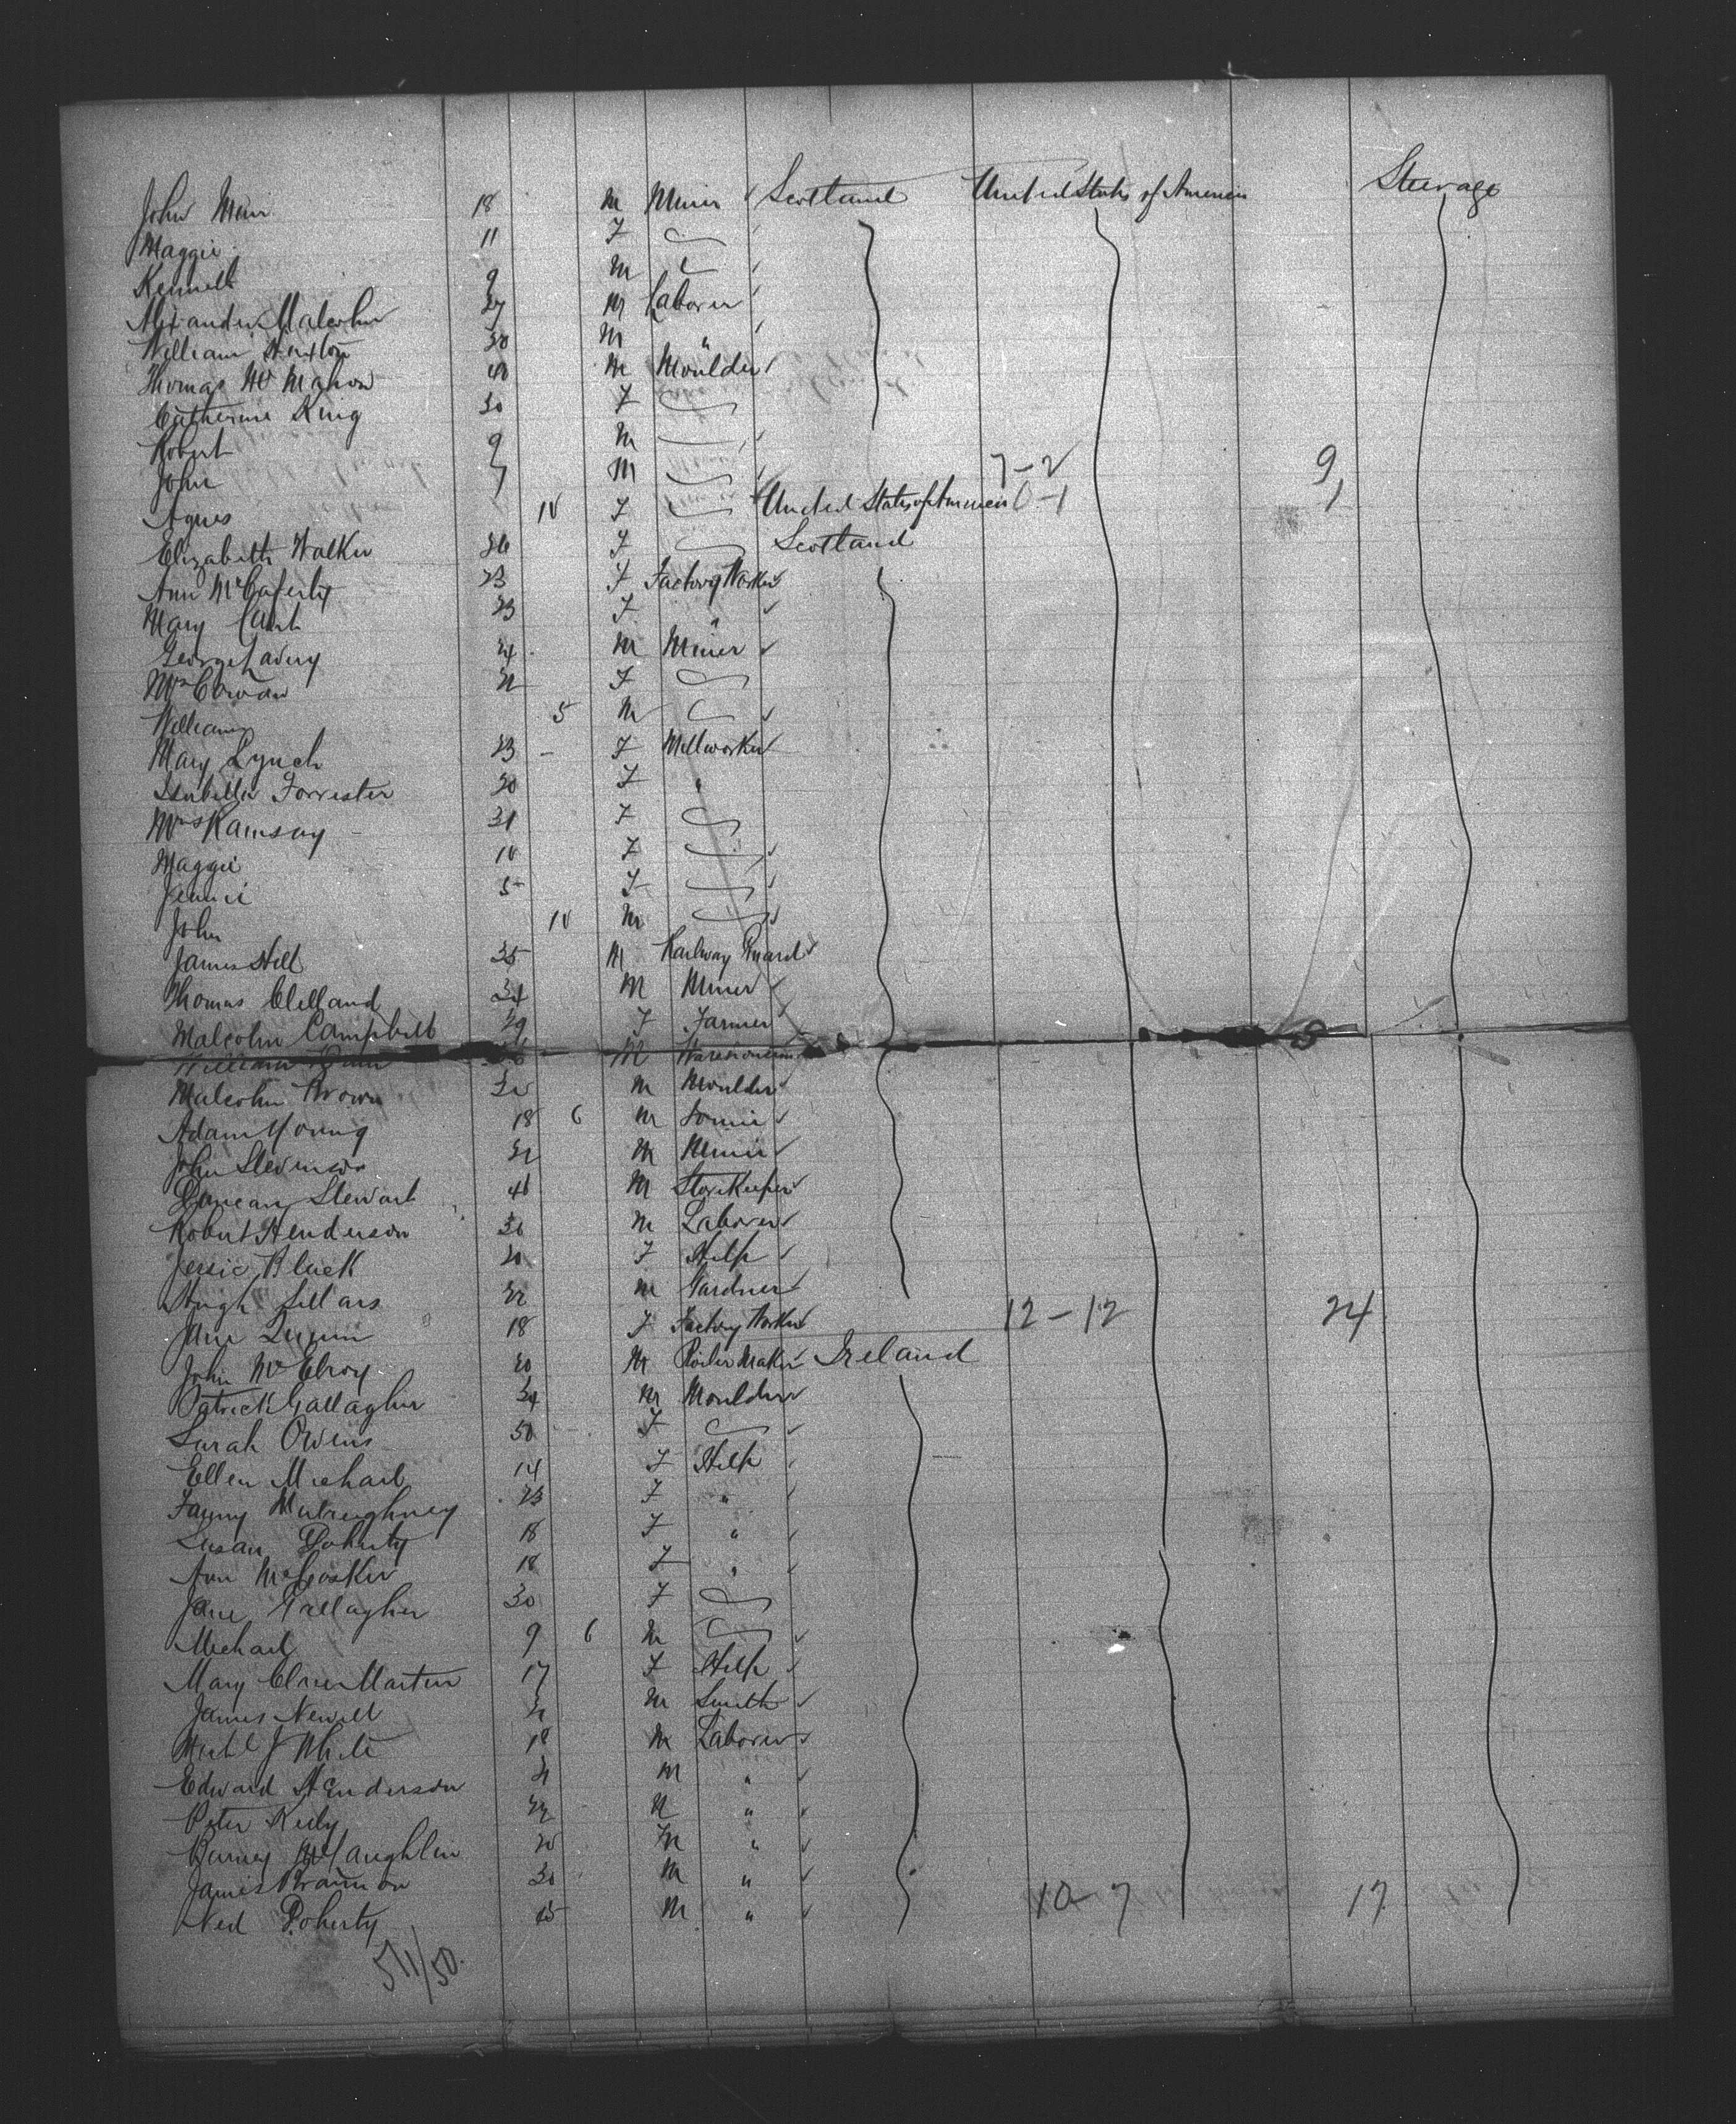 John Muir 18 M Miner Scotland United States of America Steerage
Maggie 11 F
Kenneth 9 M
Alexander Malcolm 27 M Laborer
William Sexton 30 M "
Thomas McMahon 40 M Moulder
Catherine King 30 F
Robert 9 M
John 7 M 7-2 9
Agnes 10 F United States of America 0-1 1
Elizabeth Walker 26 F Scotland
Ann McCaferty 23 F Factory Worker
Mary Cant 23 F "
George Lavery 24 M Miner
Mrs Cowan F
William 5 M
Mary Lynch 23 F Millworker
Isabella Forrester 20 F "
Mrs Ramsay 31 F
Maggie 10 F
Jennie 5 F
John 10 M
James Hill 35 M Railway Guard
Thomas Clelland 34 M Miner
Malcolm Campbell 29 F Farmer
William M
Malcolm Brown M Moulder
Adam Young 18 6 M
John Stevenson M
Duncan Stewart 40 M Storekeeper
Robert Henderson 30 M Laborer
Jessie Black 20 F Help
Hugh Sillars 22 M Gardner
Jane Quinn 18 F Factory Worker 12-12 24
John McElroy 20 M Boiler Maker Ireland
Patrick Gallagher 34 M Moulder
Sarah Owens 50 F
Ellen Michael 14 F Help
Fanny 23 F "
Susan Doherty 18 F "
Ann McCosker 18 F "
Jane Gallagher 30 F
Michael 9 6 M
Mary Martin 17 F Help
James Newell 21 M Smith
Michl J White 18 M Laborer
Edward Henderson 21 M "
Peter Reily 22 M "
Barney McLaughlin 20 M "
James Brannon 30 M "
Ned Doherty 45 M " 10-7 17
511/50